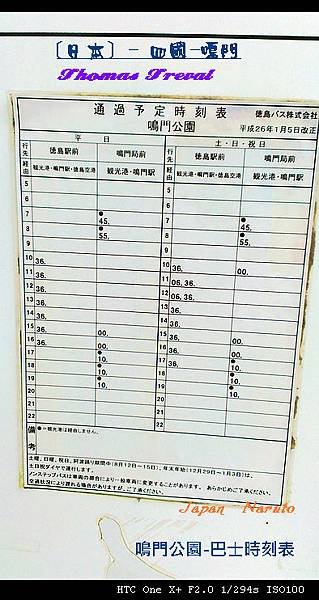 〔日本〕-四國-鳴門
Thomas Treval
通過予定時刻表
徳島バス株式会社
鳴門公園
平成26年1月5日改正
平 日
土・日・祝日
行先 徳島駅前 鳴門局前 行先 徳島駅前 鳴門局前
経由 観光港・鳴門駅・徳島空港 観光港・鳴門駅 経由 観光港・鳴門駅・徳島空港 観光港・鳴門駅
5 5
6 6
7 ●45. 7 ●45.
8 ●55. 8 ●55.
9 9
10 36. 10 36. 00.
11 36. 11 06, 36.
12 36. 12 06, 36.
13 36. 13 36.
14 36. 14 36.
15 36. 00. 15 36. 00.
16 36. 00. 16 36. 00.
17 ●10. 17 36. ●10.
18 ●10. 18 ●10.
19 ●10. 19 ●10.
20 20
21 21
22 22
備考
●=観光港は経由しません。
土曜、日曜、祝日、阿波踊り期間中(8月12日~15日)、年末年始(12月29日~1月3日)は、
土日祝ダイヤで運行します。
ノンステップバスは車両の都合により一般車両に変更することがあります。あらかじめご了承ください。
交通状況により遅れる場合がありますが、ご了承ください。
Japan Naruto
鳴門公園-巴士時刻表
HTC One X+ F2.0 1/294s ISO100